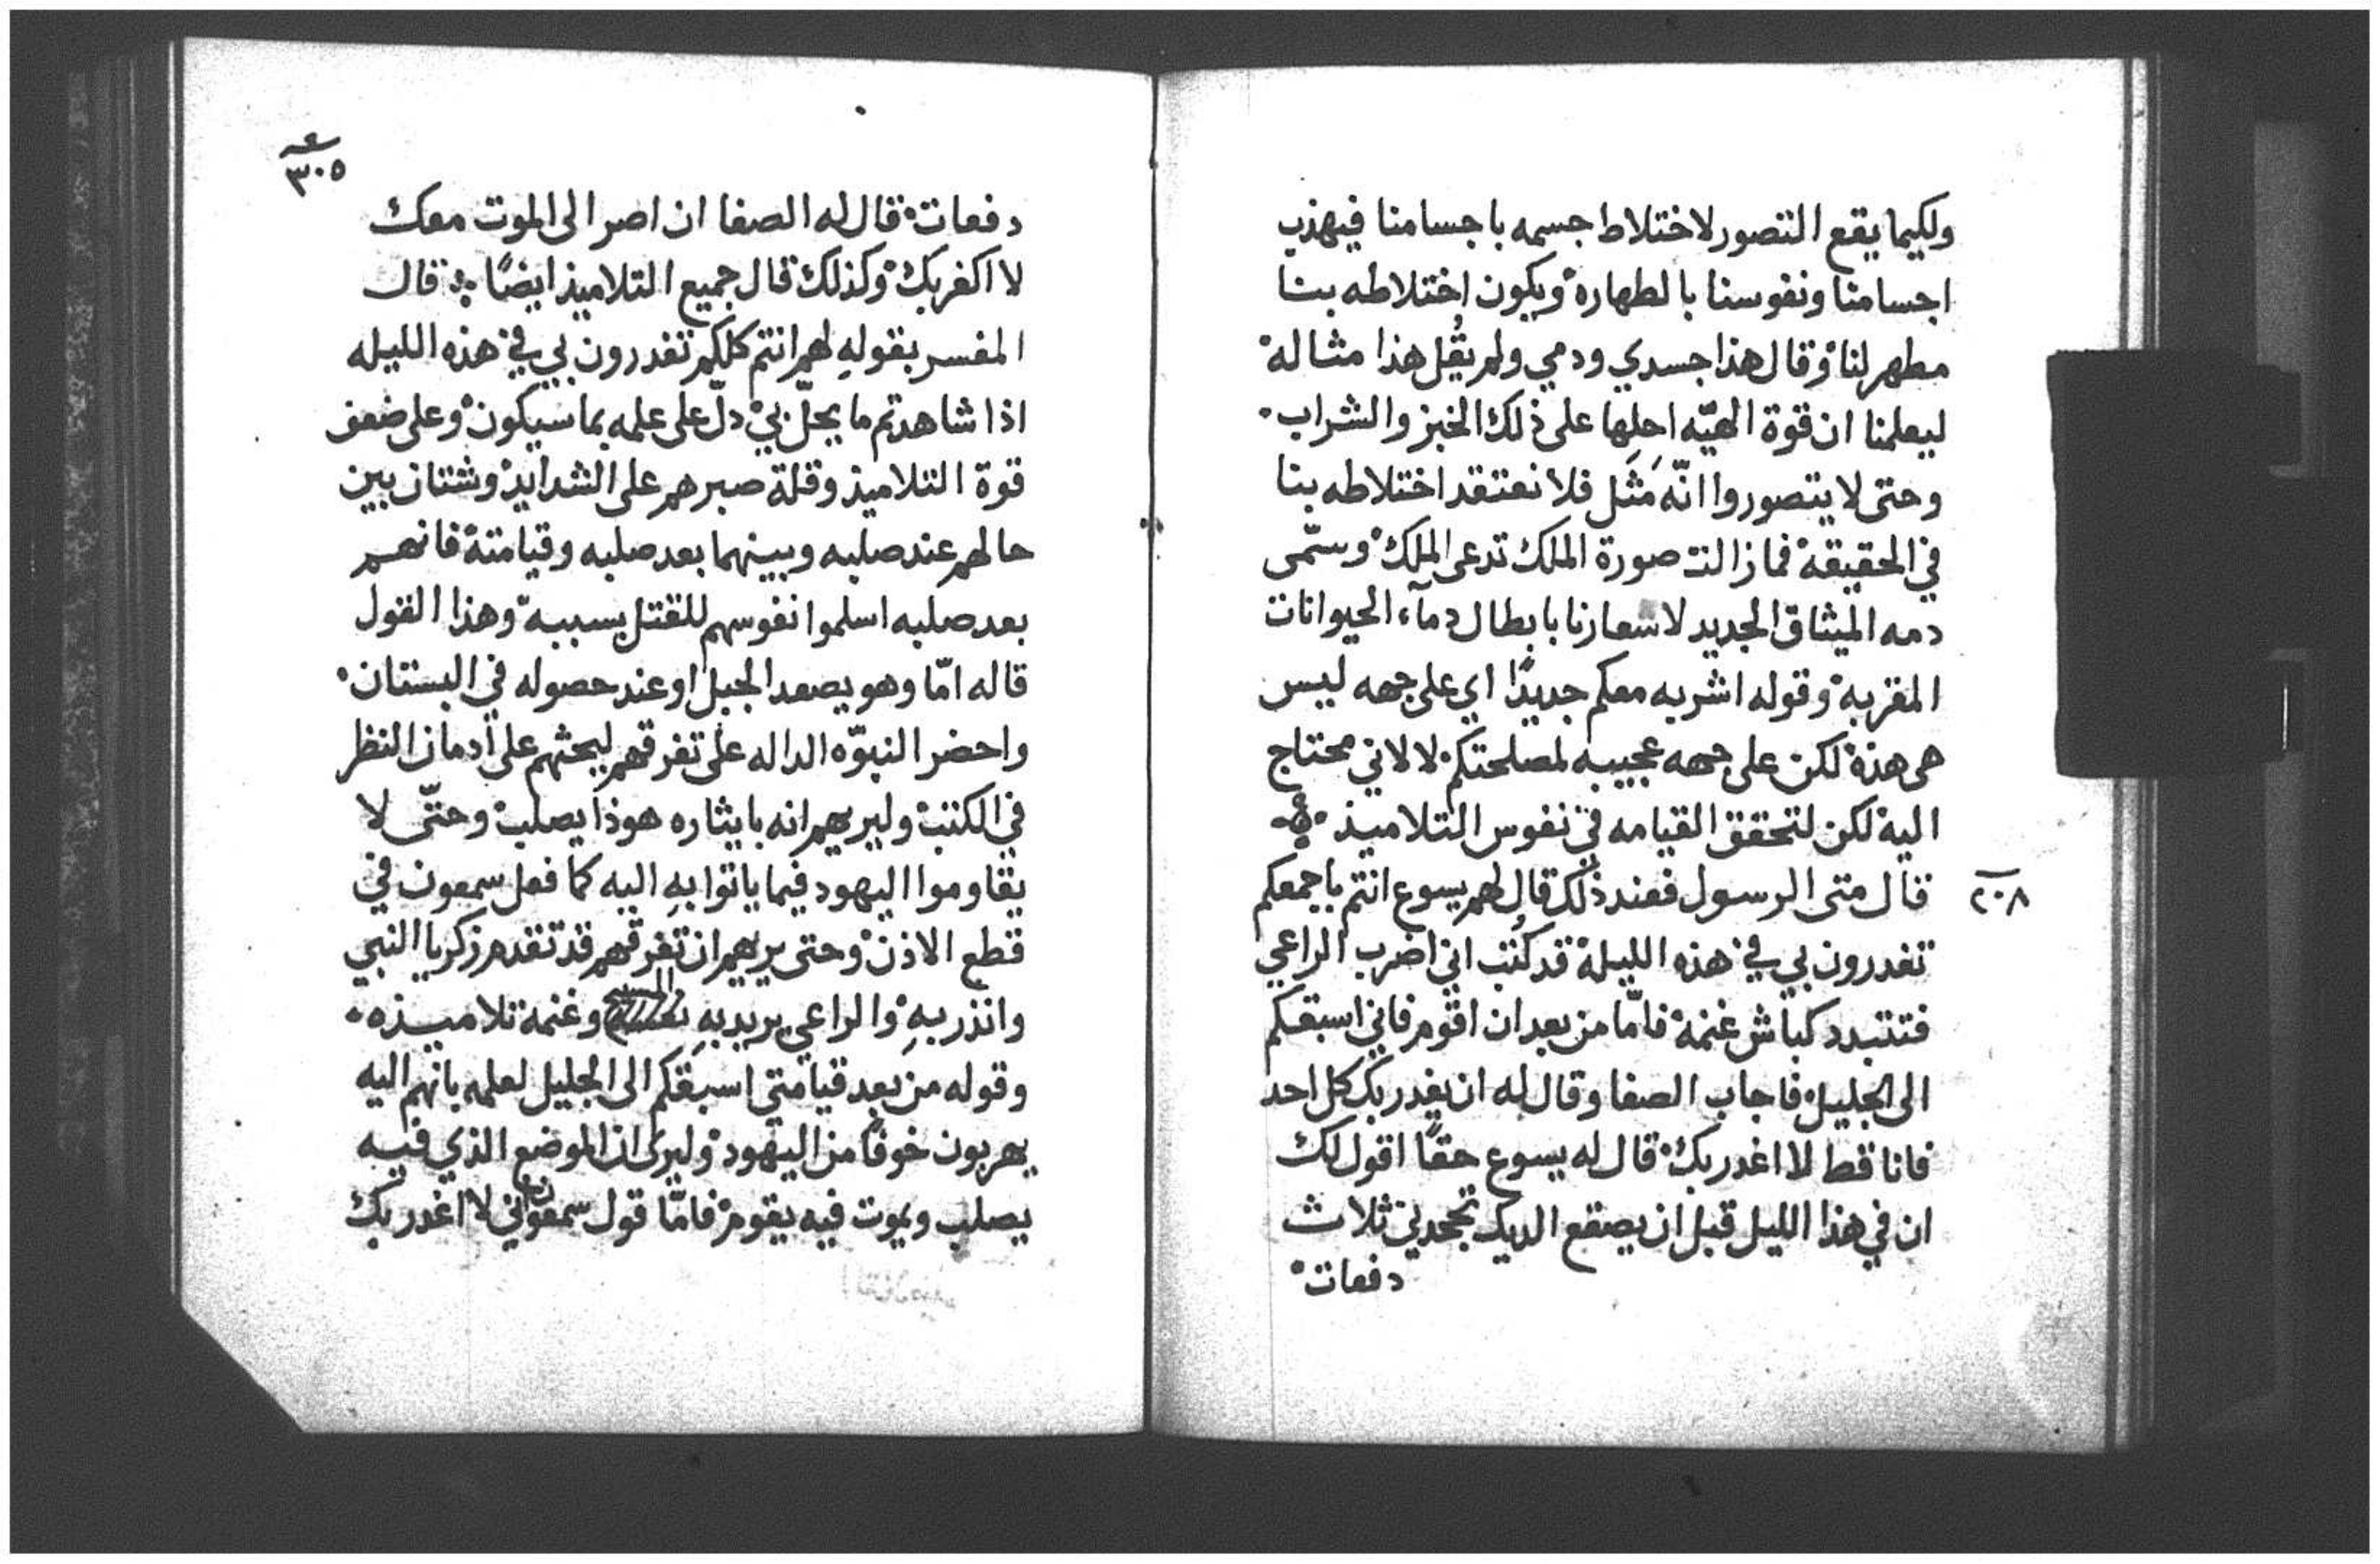 ولكيما يقع التصور لاختلاط جسمه باجسامنا فيهذب
اجسامنا ونفوسنا بالطهارة ويكون اختلاطه بنا
مطهر لنا وقال هذا جسدي ودمي ولم يقُل هذا مثاله
ليعلمنا ان قوة الهيّه احلها على ذلك الخبز والشراب
وحتى لا يتصوروا انّه مَثَل فلا نعتقد اختلاطه بنا
في الحقيقة فما زالت صورة الملك تدعى الملك وسمّى
دمه الميثاق الجديد لاشعارنا بابطال دمآء الحيوانات
المقربه وقوله اشربه معكم جديدًا اي على جهه ليس
هى هذه لكن على جهه عجيبه لمصلحتكم لا لاني محتاج
اليه لكن لتحقق القيامه في نفوس التلاميذ
٢٠٨
قال متى الرسول فعند ذلك قال لهم يسوع انتم باجمعكم
تغدرون بي في هذه الليلة قد كُتب اني اضرب الراعي
فتتبدد كباش غنمه فامّا من بعد ان اقوم فاني اسبقكم
الى الجليل فاجاب الصفا وقال له ان يغدر بك كل احد
فانا قط لا اغدر بك قال له يسوع حقًا اقول لك
ان في هذا الليل قبل ان يصقع الديك تجحدني ثلاث
دفعات
٣٠٥
دفعات قال له الصفا ان اصر الى الموت معك
لا اكفر بك وكذلك قال جميع التلاميذ ايضًا قال
المفسر بقولهِ لهم انتم كلكم تغدرون بي في هذه الليله
اذا شاهدتم ما يحلّ بي دلّ على علمه بما سيكون وعلى ضعف
قوة التلاميذ وقلة صبرهم على الشدايد وشتان بين
حالهم عند صلبه وبينهما بعد صلبه وقيامته فانهم
بعد صلبه اسلموا نفوسهم للقتل بسببه وهذا القول
قاله امّا وهو يصعد الجبل او عند حصوله في البستان
واحضر النبوّه الداله على تفرقهم ليحثهم على ادمان النظر
في الكتب وليريهم انه بايثاره هوذا يصلب وحتّى لا
يقاوموا اليهود فيما ياتوا بهِ اليه كما فعل سمعون في
قطع الاذن وحتى يريهم ان تفرقهم قد تقدم زكريا النبي
وانذر بهِ والراعي يريد بهِ المسيح وغنمة تلاميذه
وقوله من بعد قيامتي اسبقكم الى الجليل لعلمه بانهم اليه
يهربون خوفًا من اليهود وليرى ان الموضع الذي فيه
يصلب ويموت فيه يقوم فامّا قول سمعون اني لا اغدر بك